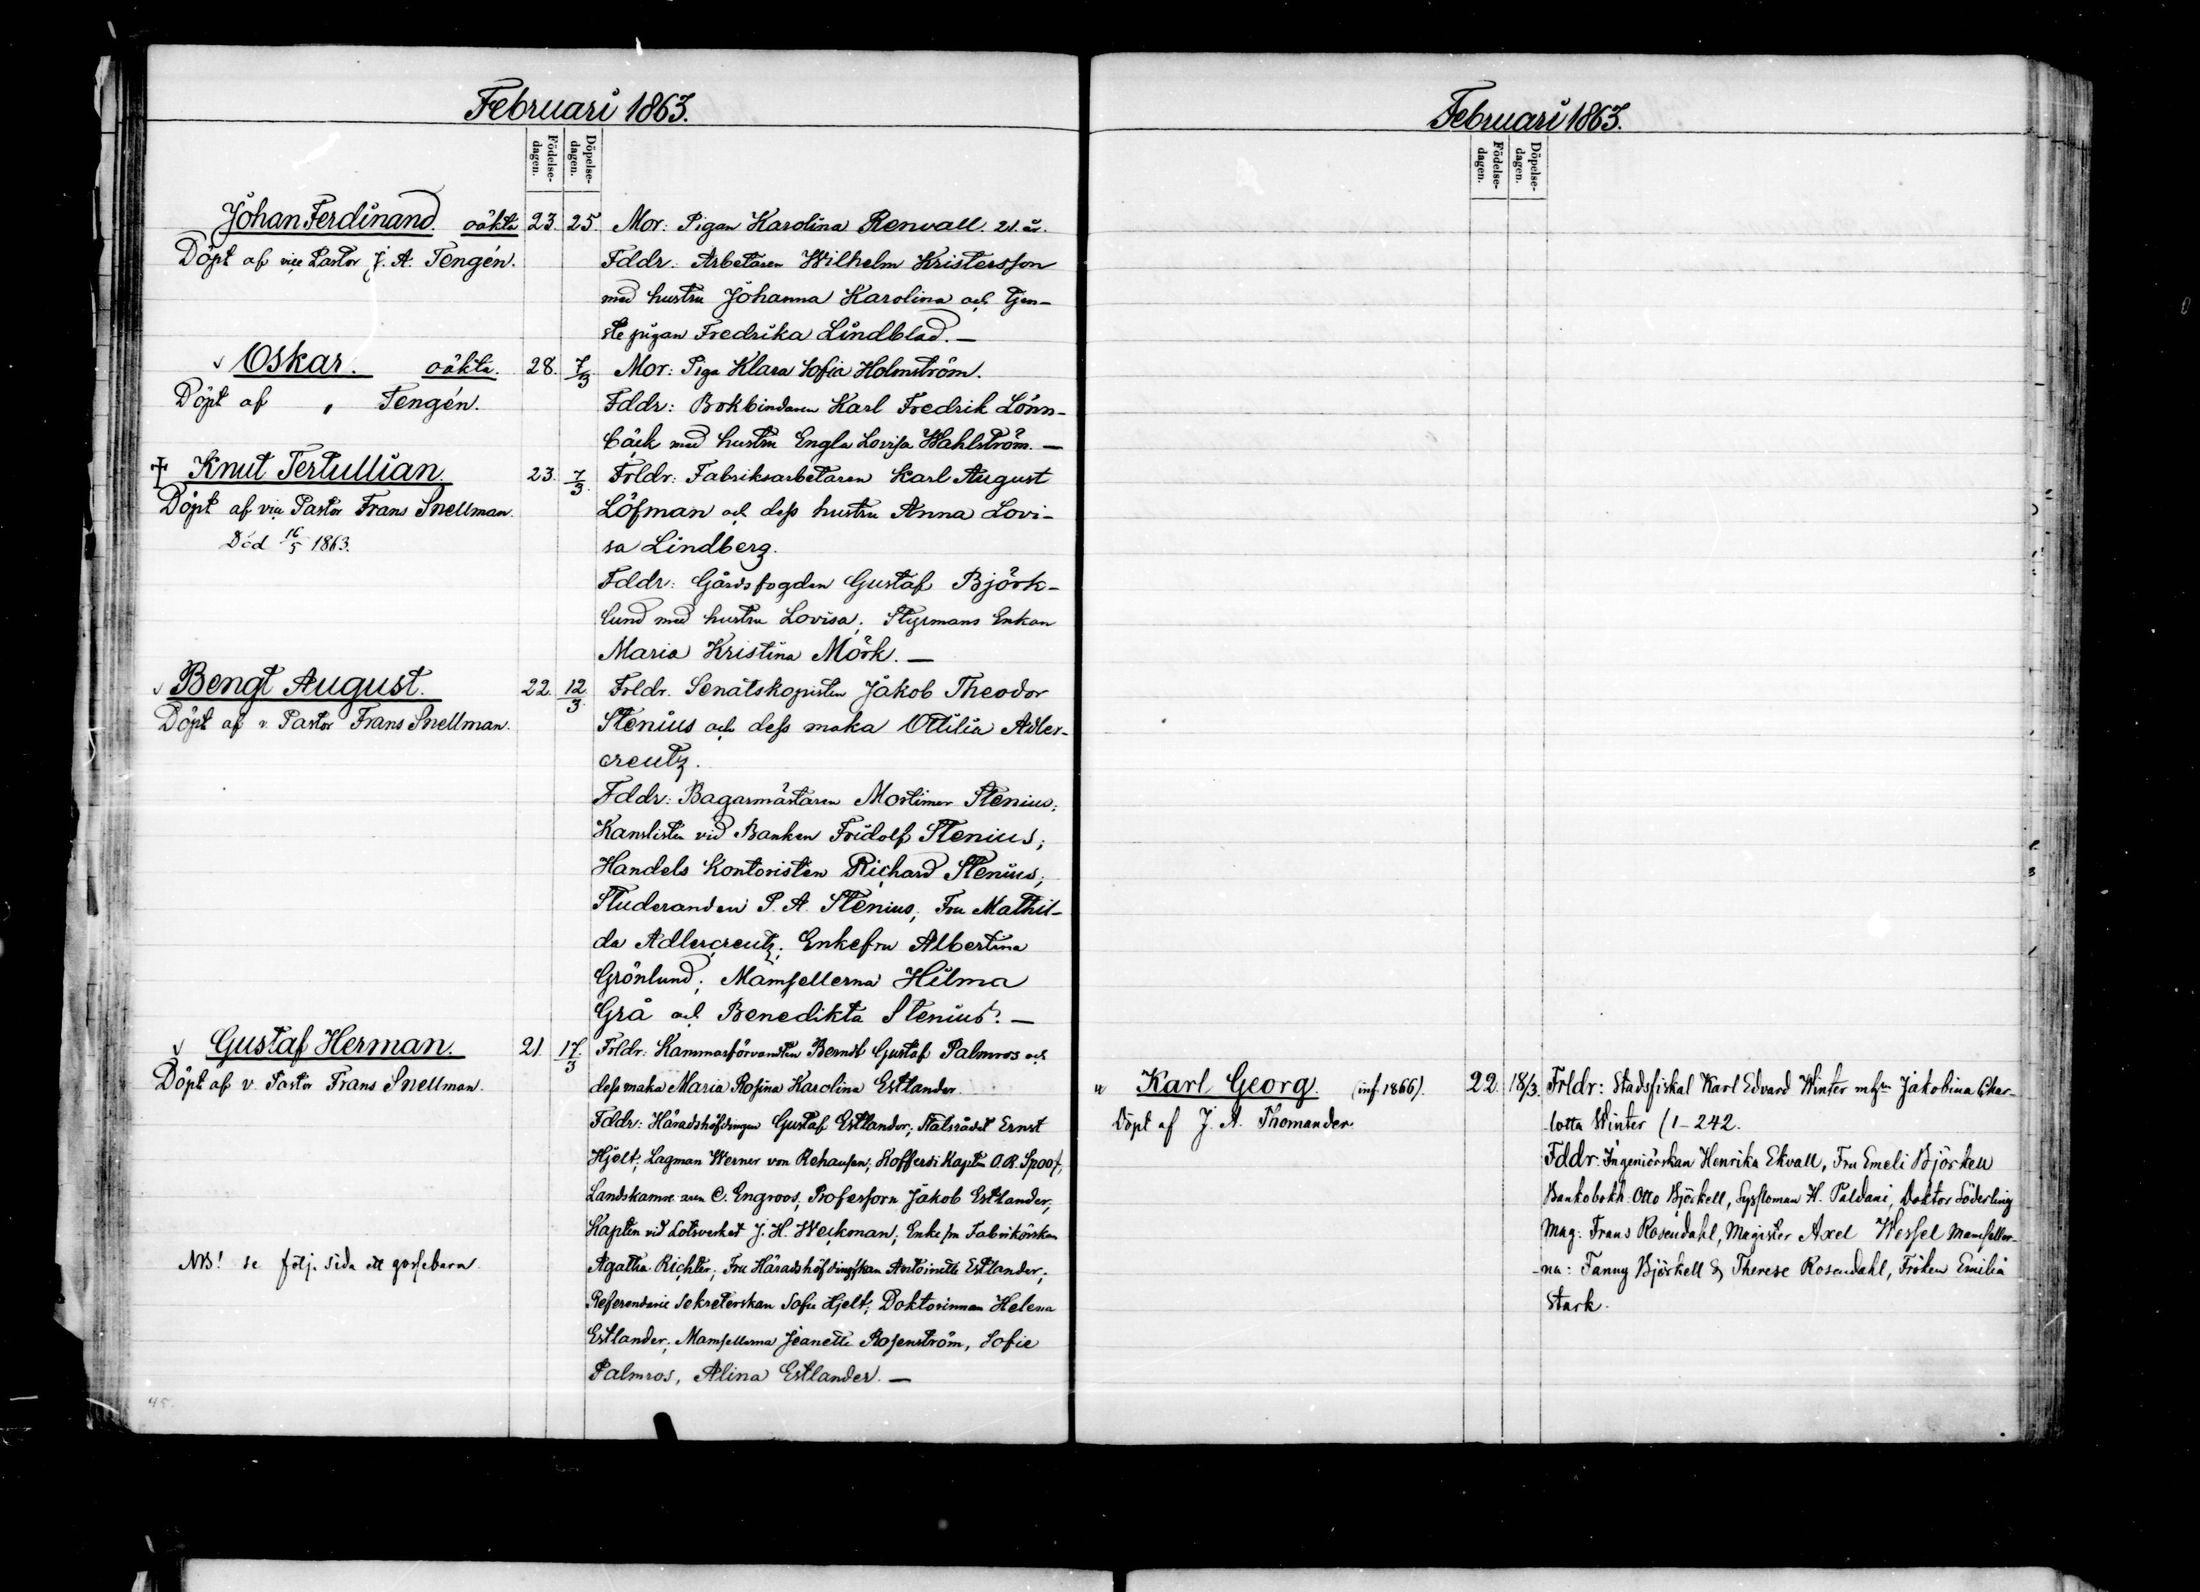 Februari 1863.
Födelse-dagen.
Döpelse-dagen.
Johan Ferdinand. oäkta 23. 25. Mor: Pigan Karolina Renvall 21. år.
Döpt af vice Pastor J. A. Tengén. Fddr: Arbetaren Wilhelm Kristersson
med hustru Johanna Karolina och Tjen-
ste pigan Fredrika Lindblad. —
Oskar. oäkta. 28. 7/3 Mor: Piga Klara Sofia Holmström.
Döpt af " Tengén. Fddr: Bokbindaren Karl Fredrik Lönn-
bäck med hustru Engla Lovisa Wahlström. —
† Knut Tertullian. 23. 7/3. Frldr: Fabriksarbetaren Karl August
Döpt af vice Pastor Frans Snellman. Löfman och dess hustru Anna Lovi-
Död 16/5 1863. sa Lindberg.
Fddr: Gårdsfogden Gustaf Björk-
lund med hustru Lovisa; Styrmans Enkan
Maria Kristina Mörk. —
Bengt August. 22. 12/3. Frldr. Senatskopisten Jakob Theodor
Döpt af v. Pastor Frans Snellman. Stenius och dess maka Ottilia Adler-
creutz.
Fddr: Bagarmästaren Mortimer Stenius;
Kanslisten vid Banken Fridolf Stenius;
Handels Kontoristen Richard Stenius;
Studeranden P. A. Stenius; Fru Mathil-
da Adlercreutz; Enkefru Albertina
Grönlund; Mamsellerna Hilma
Grå och Benedikta Stenius. —
Gustaf Herman. 21. 17/3. Frldr: Kammarförvandten Berndt Gustaf Palmros och
Döpt af v. Pastor Frans Snellman. dess maka Maria Rosina Karolina Estlander.
Fddr: Häradshöfdingen Gustaf Estlander; Statsrådet Ernst
Hjelt; Lagman Werner von Rehausen; Kofferdi Kapten O.R. Spoof;
Landskamr: aren C. Engroos; Professorn Jakob Estlander;
Kapten vid Lotsverket J. H. Weckman; Enke fru Fabrikörskan
NB! se följ. sida ett gossebarn. Agatha Richter; Fru Häradshöfdingskan Antoinette Estlander;
Referendarie sekreterskan Sofie Hjelt; Doktorinnan Helena
Estlander; Mamsellerna Jeanette Rosenström, Sofie
Palmros, Alina Estlander. —
45.
Februari 1863.
Födelse-dagen.
Döpelse-dagen.
Karl Georg. (inf. 1866). 22. 18/3. Frldr: Stadsfiskal Karl Edvard Winter m hn Jakobina Char-
Döpt af J. A. Thomander -lotta Winter (1-242.
Fddr. Ingeniörskan Henrika Ekvall, Fru Emeli Björkell
Bankobokh. Otto Björkell, Syssloman H. Paldani, Doktor Söderling
Mag: Frans Rosendahl, Magister Axel Wessel Mamseller-
-na: Fanny Björkell & Therese Rosendahl, Fröken Emilia
Stark.